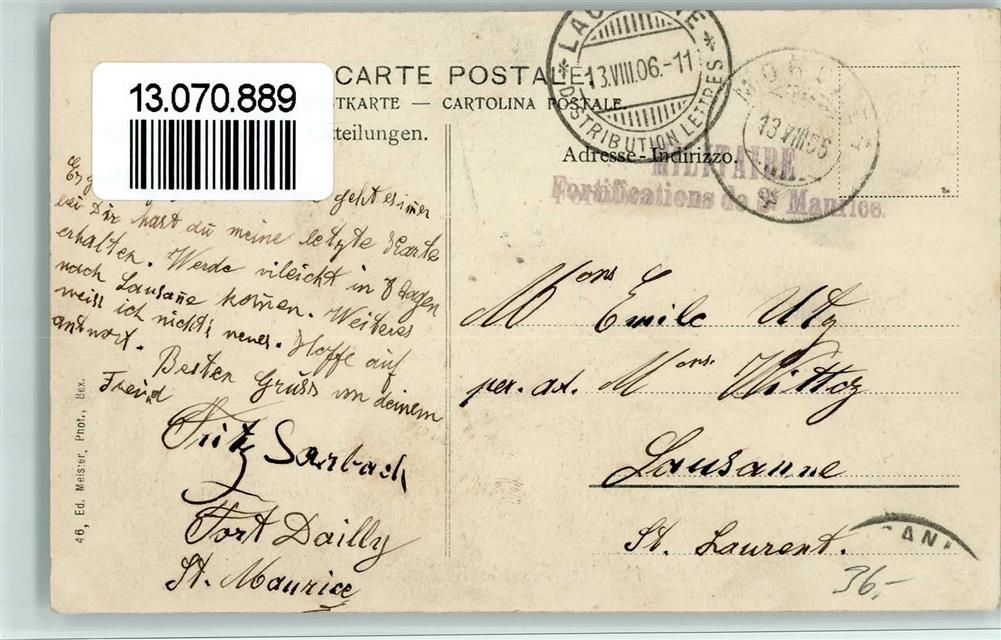 CARTE POSTALE.
TKARTE — CARTOLINA POSTALE.
tteilungen.
Adresse - Indirizzo.
13.070.889
LAU E
* DISTRIBUTION LETTRES *
13.VIII.06.-11
13 VIII 06
MILITAIRE
Fortifications de St Maurice.
geht es immer
bei Dir hast du meine letzte Karte
erhalten. Werde vileicht in 8 Tagen
nach Lausañe kom̄en. Weiteres
weiss ich nichts neues. Hoffe auf
antwort. Besten Gruss von deinem
Freund
Fritz Sarbach
Fort Dailly
St. Maurice
Mons Emile Utz
per. ad. Mons. Wittcz
Lausanne
St. Laurent.
36.-
46, Ed. Meister, Phot., Bex.